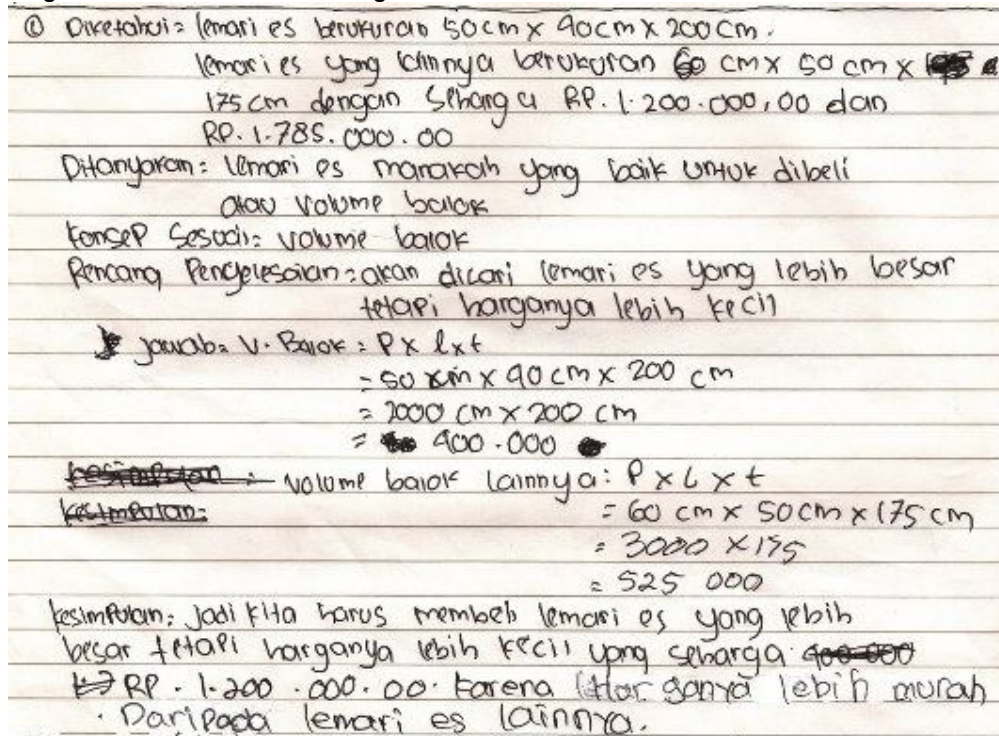 ① Diketahui = lemari es berukuran 50cm x 40cm x 200cm.
lemari es yang lainnya berukuran 60 cm x 50 cm x
175 cm dengan seharga RP. 1.200.000,00 dan
RP. 1.785.000.00
Ditanyakan = lemari es manakah yang baik untuk dibeli
atau volume balok
Konsep Sesuai = volume balok
Rencang Pengelesaian = akan dicari lemari es yang lebih besar
tetapi harganya lebih kecil
jawab = V. Balok = P x l x t
= 50 cm x 40 cm x 200 cm
= 2000 cm x 200 cm
= 400.000
kesimpulan = volume balok lainnya : P x L x t
kesimpulan = = 60 cm x 50 cm x 175 cm
= 3000 x 175
= 525 000
kesimpulan : Jadi kita harus membeli lemari es yang lebih
besar tetapi harganya lebih kecil yang seharga 400.000
RP. 1.200.000.00. Karena harganya lebih murah
Daripada lemari es lainnya.